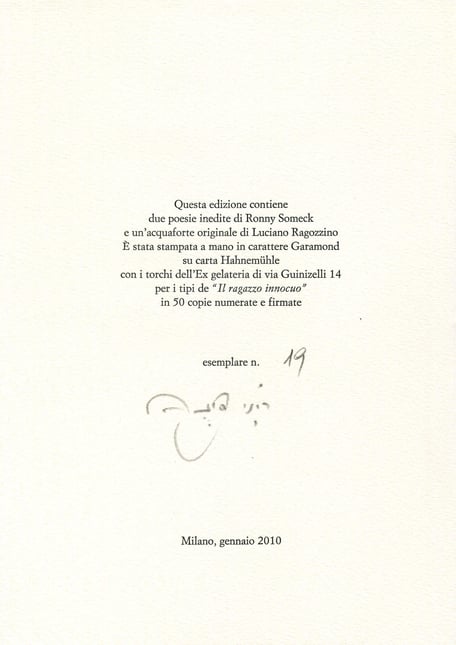 Questa edizione contiene
due poesie inedite di Ronny Someck
e un'acquaforte originale di Luciano Ragozzino
È stata stampata a mano in carattere Garamond
su carta Hahnemühle
con i torchi dell'Ex gelateria di via Guinizelli 14
per i tipi de "Il ragazzo innocuo"
in 50 copie numerate e firmate
esemplare n. 19
רוני סומק
Milano, gennaio 2010